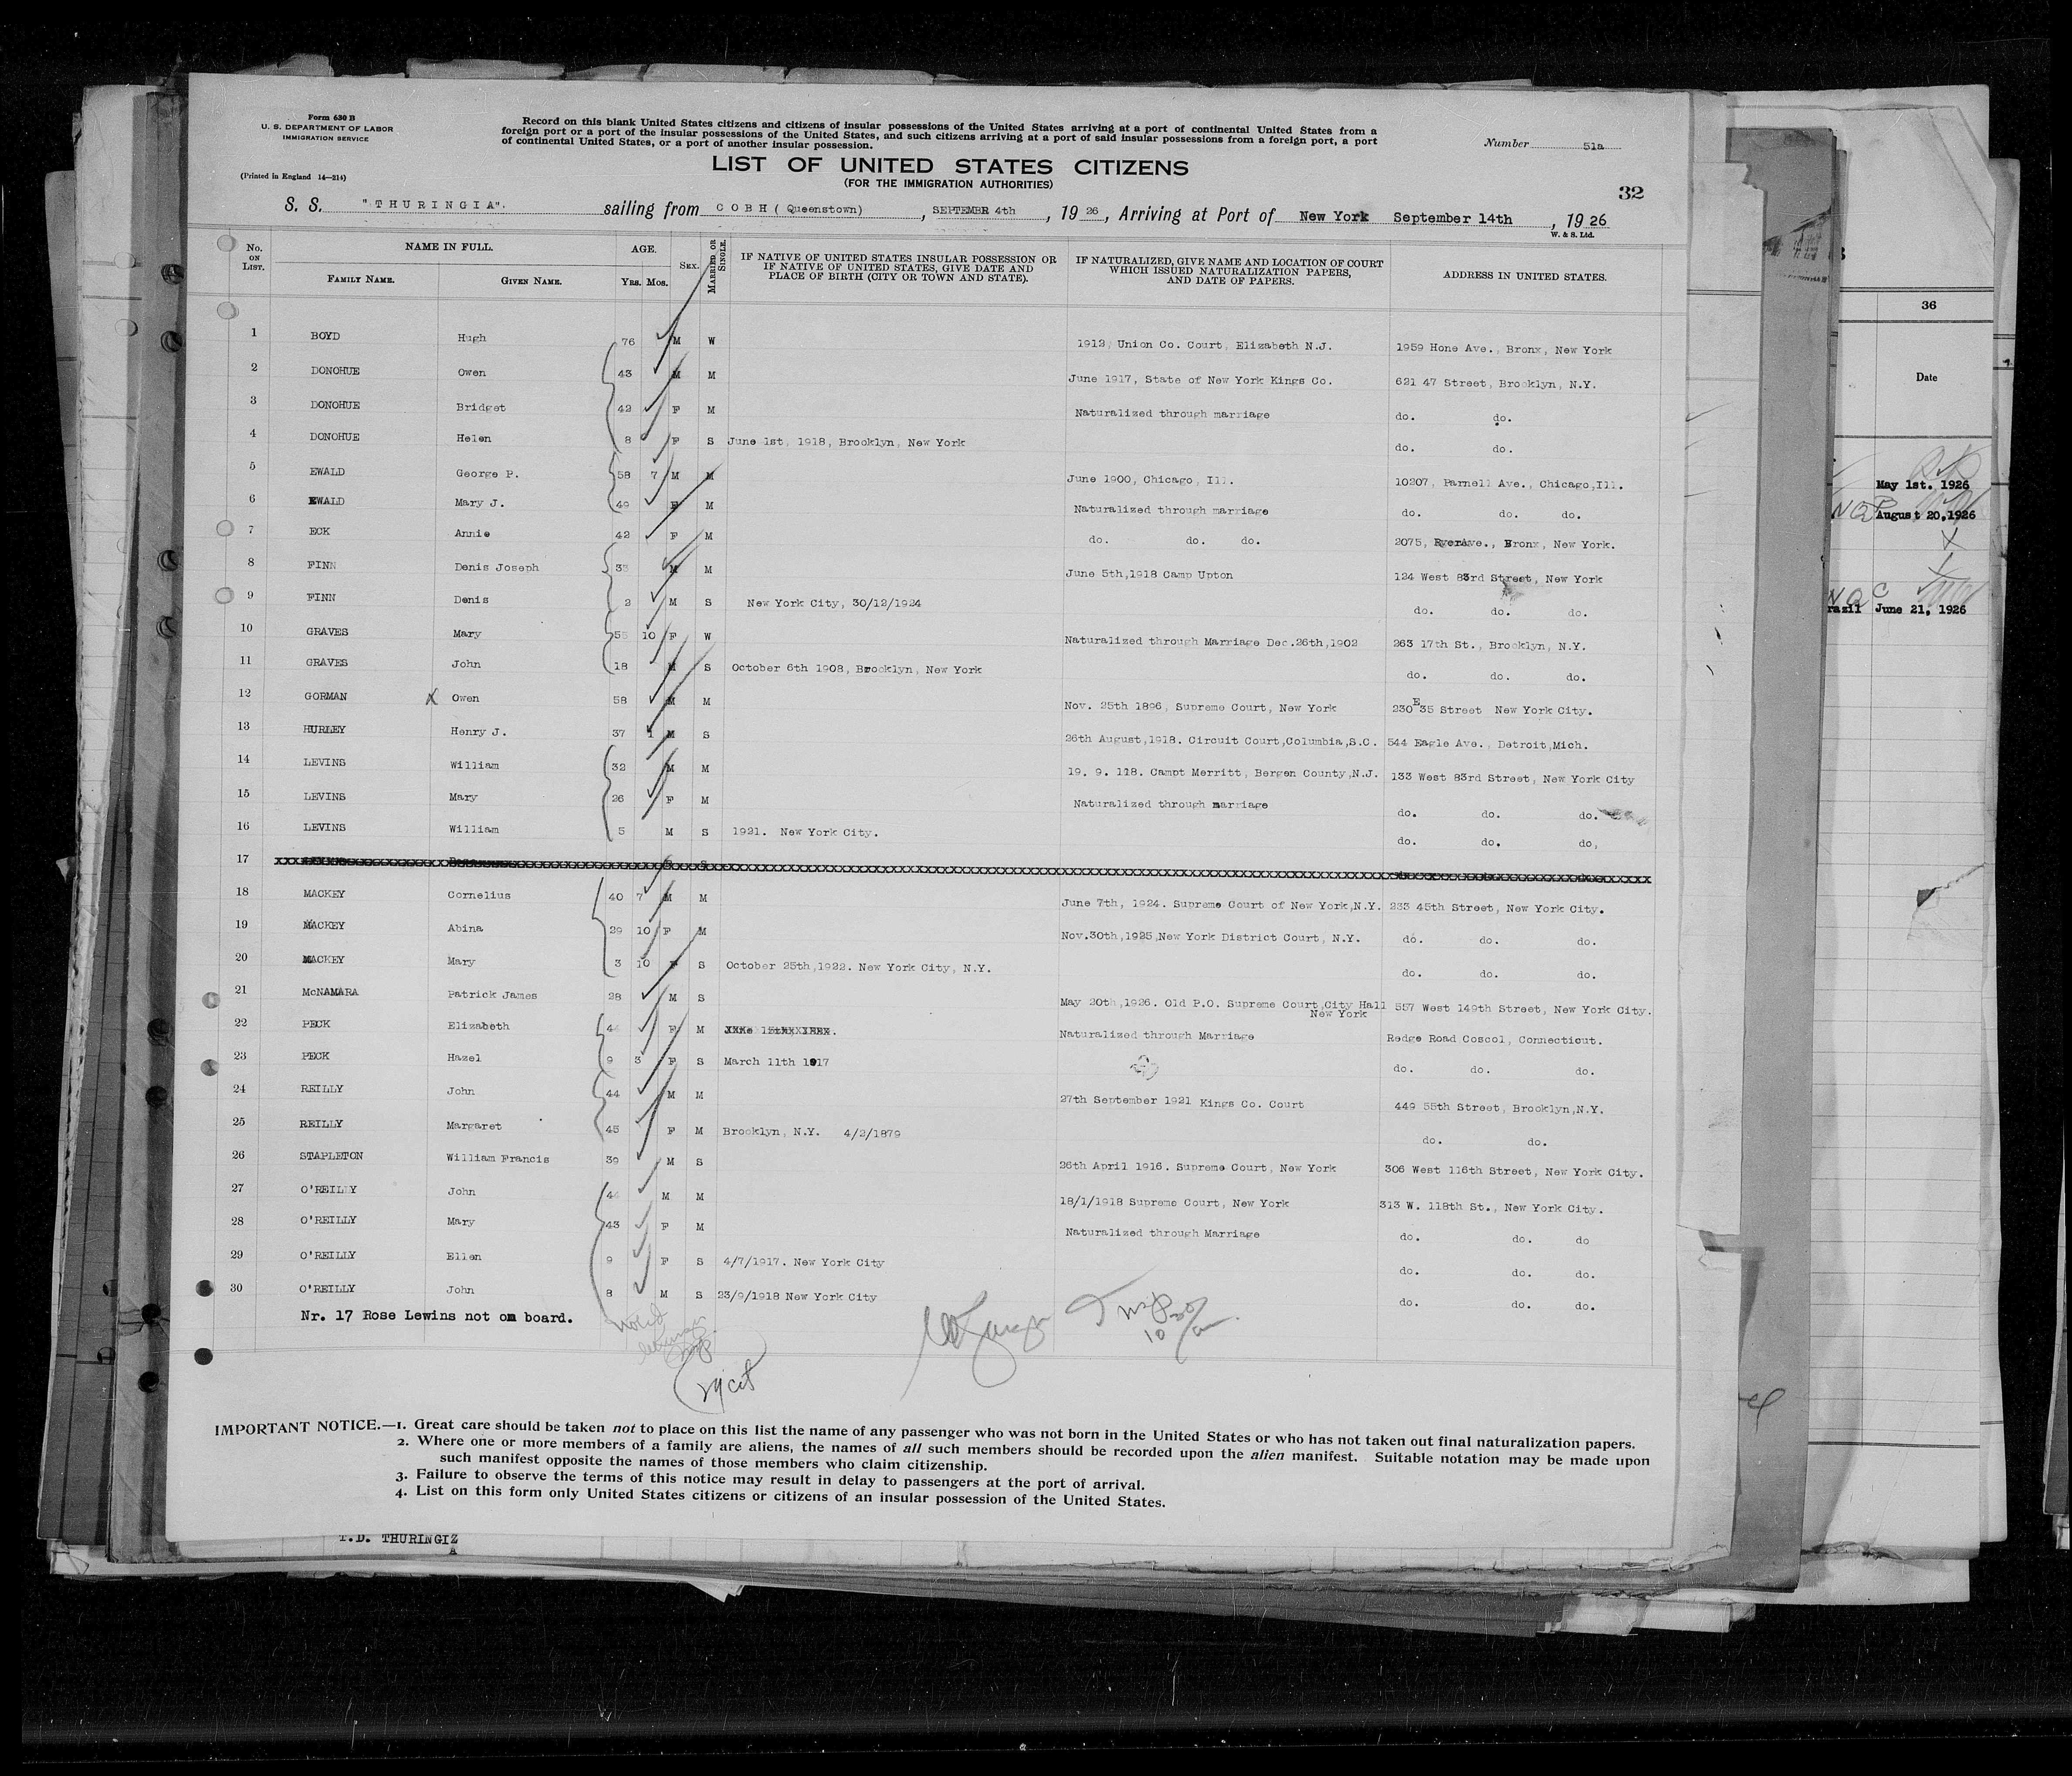 Form 630 B
U. S. DEPARTMENT OF LABOR
IMMIGRATION SERVICE
(Printed in England 14—214)
Record on this blank United States citizens and citizens of insular possessions of the United States arriving at a port of continental United States from a
foreign port or a port of the insular possessions of the United States, and such citizens arriving at a port of said insular possessions from a foreign port, a port
of continental United States, or a port of another insular possession.
Number 51a
LIST OF UNITED STATES CITIZENS
(FOR THE IMMIGRATION AUTHORITIES)
32
S. S. "THURINGIA". sailing from COBH (Queenstown), SEPTEMBER 4th, 1926, Arriving at Port of New York September 14th, 1926
W. & S. Ltd.
No. ON LIST. NAME IN FULL. AGE. SEX. MARRIED OR SINGLE. IF NATIVE OF UNITED STATES INSULAR POSSESSION OR IF NATIVE OF UNITED STATES, GIVE DATE AND PLACE OF BIRTH (CITY OR TOWN AND STATE). IF NATURALIZED, GIVE NAME AND LOCATION OF COURT WHICH ISSUED NATURALIZATION PAPERS, AND DATE OF PAPERS. ADDRESS IN UNITED STATES.
FAMILY NAME. GIVEN NAME. YRS. MOS.
1 BOYD Hugh 76 M W 1912, Union Co. Court, Elizabeth N.J. 1959 Hone Ave., Bronx, New York
2 DONOHUE Owen 43 M M June 1917, State of New York Kings Co. 621 47 Street, Brooklyn, N.Y.
3 DONOHUE Bridget 42 F M Naturalized through marriage do. do.
4 DONOHUE Helen 8 F S June 1st, 1918, Brooklyn, New York do. do.
5 EWALD George P. 58 7 M M June 1900, Chicago, Ill. 10207, Parnell Ave., Chicago,Ill.
6 EWALD Mary J. 49 F M Naturalized through marriage do. do. do.
7 ECK Annie 42 F M do. do. do. 2075, Ryer Ave., Bronx, New York.
8 FINN Denis Joseph M M June 5th,1918 Camp Upton 124 West 83rd Street, New York
9 FINN Denis 2 M S New York City, 30/12/1924 do. do. do.
10 GRAVES Mary 10 F W Naturalized through Marriage Dec.26th,1902 263 17th St., Brooklyn, N.Y.
11 GRAVES John 18 M S October 6th 1908, Brooklyn, New York do. do. do.
12 GORMAN X Owen 58 M M Nov. 25th 1896, Supreme Court, New York 230 E 35 Street New York City.
13 HURLEY Henry J. 37 1 M S 26th August,1918. Circuit Court,Columbia,S.C. 544 Eagle Ave., Detroit,Mich.
14 LEVINS William 32 M M 19. 9. 118. Campt Merritt, Bergen County,N.J. 133 West 83rd Street, New York City
15 LEVINS Mary 26 F M Naturalized through marriage do. do. do.
16 LEVINS William 5 M S 1921. New York City. do. do. do.
17
18 MACKEY Cornelius 40 7 M M June 7th, 1924. Supreme Court of New York,N.Y. 233 45th Street, New York City.
19 MACKEY Abina 29 10 F M Nov.30th,1925,New York District Court, N.Y. do. do. do.
20 MACKEY Mary 3 10 F S October 25th,1922. New York City, N.Y. do. do. do.
21 McNAMARA Patrick James 28 M S May 20th,1926. Old P.O. Supreme Court,City Hall New York 557 West 149th Street, New York City.
22 PECK Elizabeth F M Naturalized through Marriage Redge Road Coscol, Connecticut.
23 PECK Hazel 9 3 F S March 11th 1917 do. do. do.
24 REILLY John 44 M M 27th September 1921 Kings Co. Court 449 55th Street, Brooklyn,N.Y.
25 REILLY Margaret 45 F M Brooklyn, N.Y. 4/2/1879 do. do.
26 STAPLETON William Francis 39 M S 26th April 1916. Supreme Court, New York 306 West 116th Street, New York City.
27 O'REILLY John M M 18/1/1918 Supreme Court, New York 313 W. 118th St., New York City.
28 O'REILLY Mary 43 F M Naturalized through Marriage do. do. do
29 O'REILLY Ellen 9 F S 4/7/1917. New York City do. do. do.
30 O'REILLY John 8 M S 23/9/1918 New York City do. do. do.
Nr. 17 Rose Lewins not on board.
IMPORTANT NOTICE.—1. Great care should be taken not to place on this list the name of any passenger who was not born in the United States or who has not taken out final naturalization papers.
2. Where one or more members of a family are aliens, the names of all such members should be recorded upon the alien manifest. Suitable notation may be made upon
such manifest opposite the names of those members who claim citizenship.
3. Failure to observe the terms of this notice may result in delay to passengers at the port of arrival.
4. List on this form only United States citizens or citizens of an insular possession of the United States.
T.D. THURINGIZ
A
36
Date
May 1st. 1926
August 20,1926
razil June 21, 1926